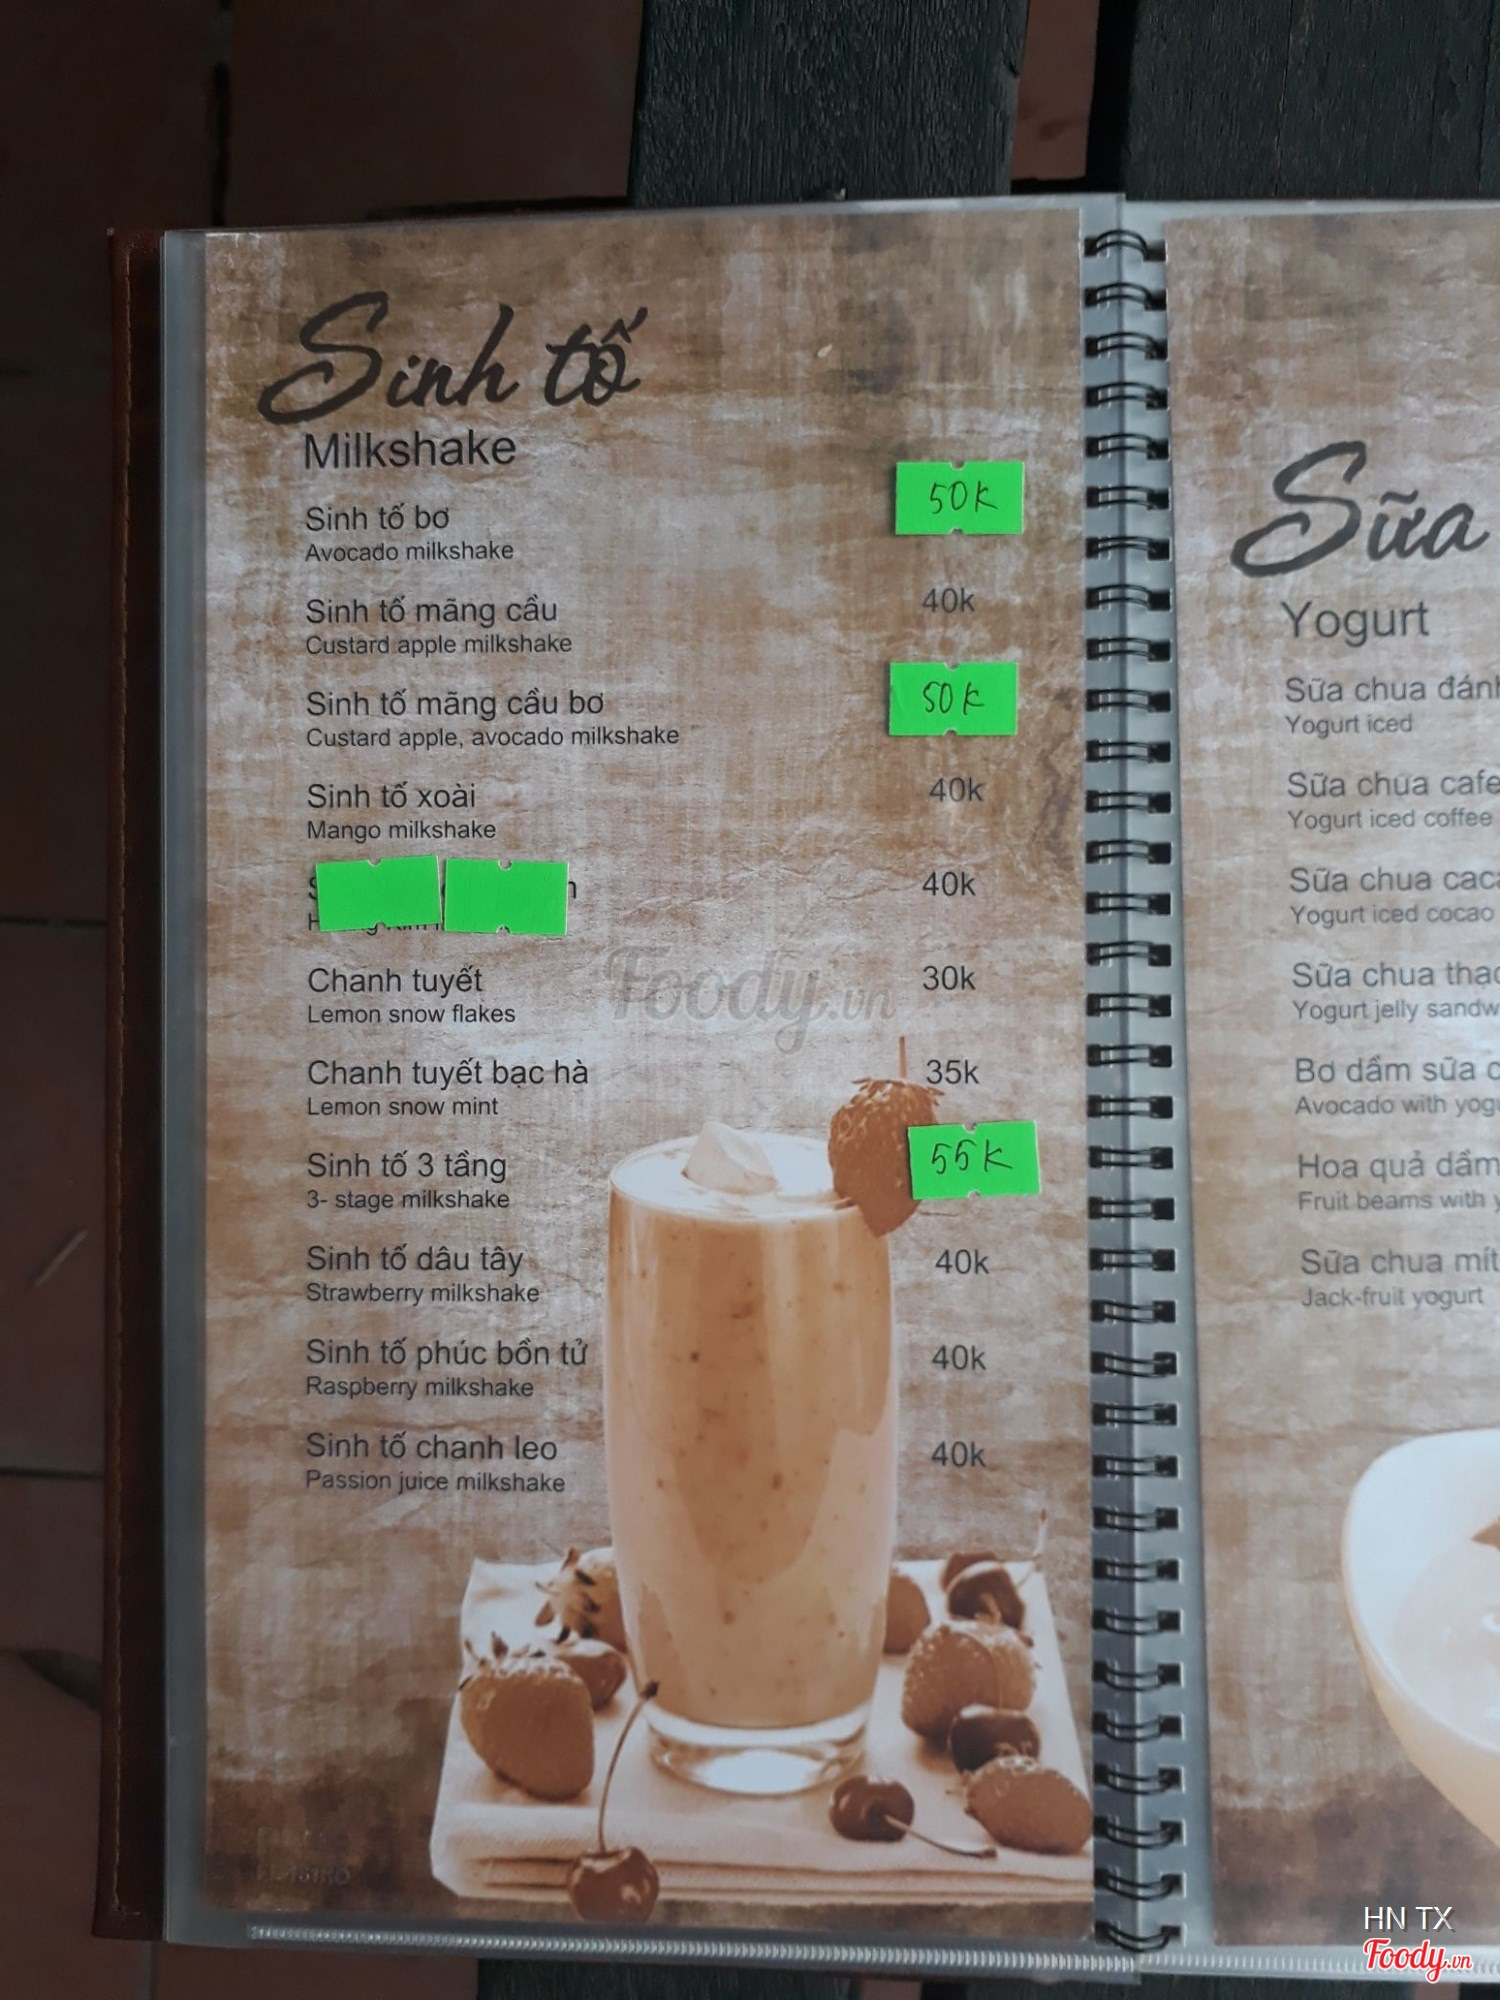 Sinh tố
Milkshake
Sinh tố bơ
Avocado milkshake
50K
Sinh tố mãng cầu
Custard apple milkshake
40k
Sinh tố mãng cầu bơ
Custard apple, avocado milkshake
50K
Sinh tố xoài
Mango milkshake
40k
40k
Chanh tuyết
Lemon snow flakes
30k
Chanh tuyết bạc hà
Lemon snow mint
35k
Sinh tố 3 tầng
3- stage milkshake
55K
Sinh tố dâu tây
Strawberry milkshake
40k
Sinh tố phúc bồn tử
Raspberry milkshake
40k
Sinh tố chanh leo
Passion juice milkshake
40k
Foody.vn
Sữa
Yogurt
Sữa chua đánh
Yogurt iced
Sữa chua cafe
Yogurt iced coffee
Sữa chua
Yogurt iced cocao
Sữa chua
Yogurt jelly
Bơ dầm sữa
Avocado with
Hoa quả dầm
Fruit beams with
Sữa chua mít
Jack-fruit yogurt
HN TX
Foody.vn